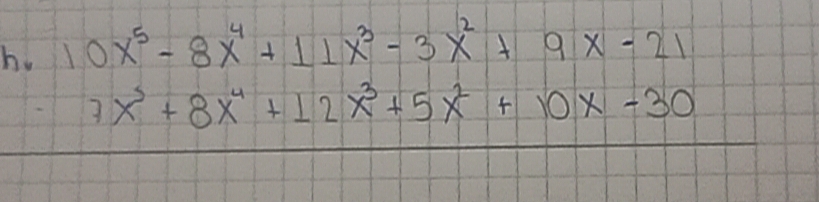 h. 10x⁵ - 8x⁴ + 11x³ - 3x² + 9x - 21
- 7x⁵ + 8x⁴ + 12x³ + 5x² + 10x - 30